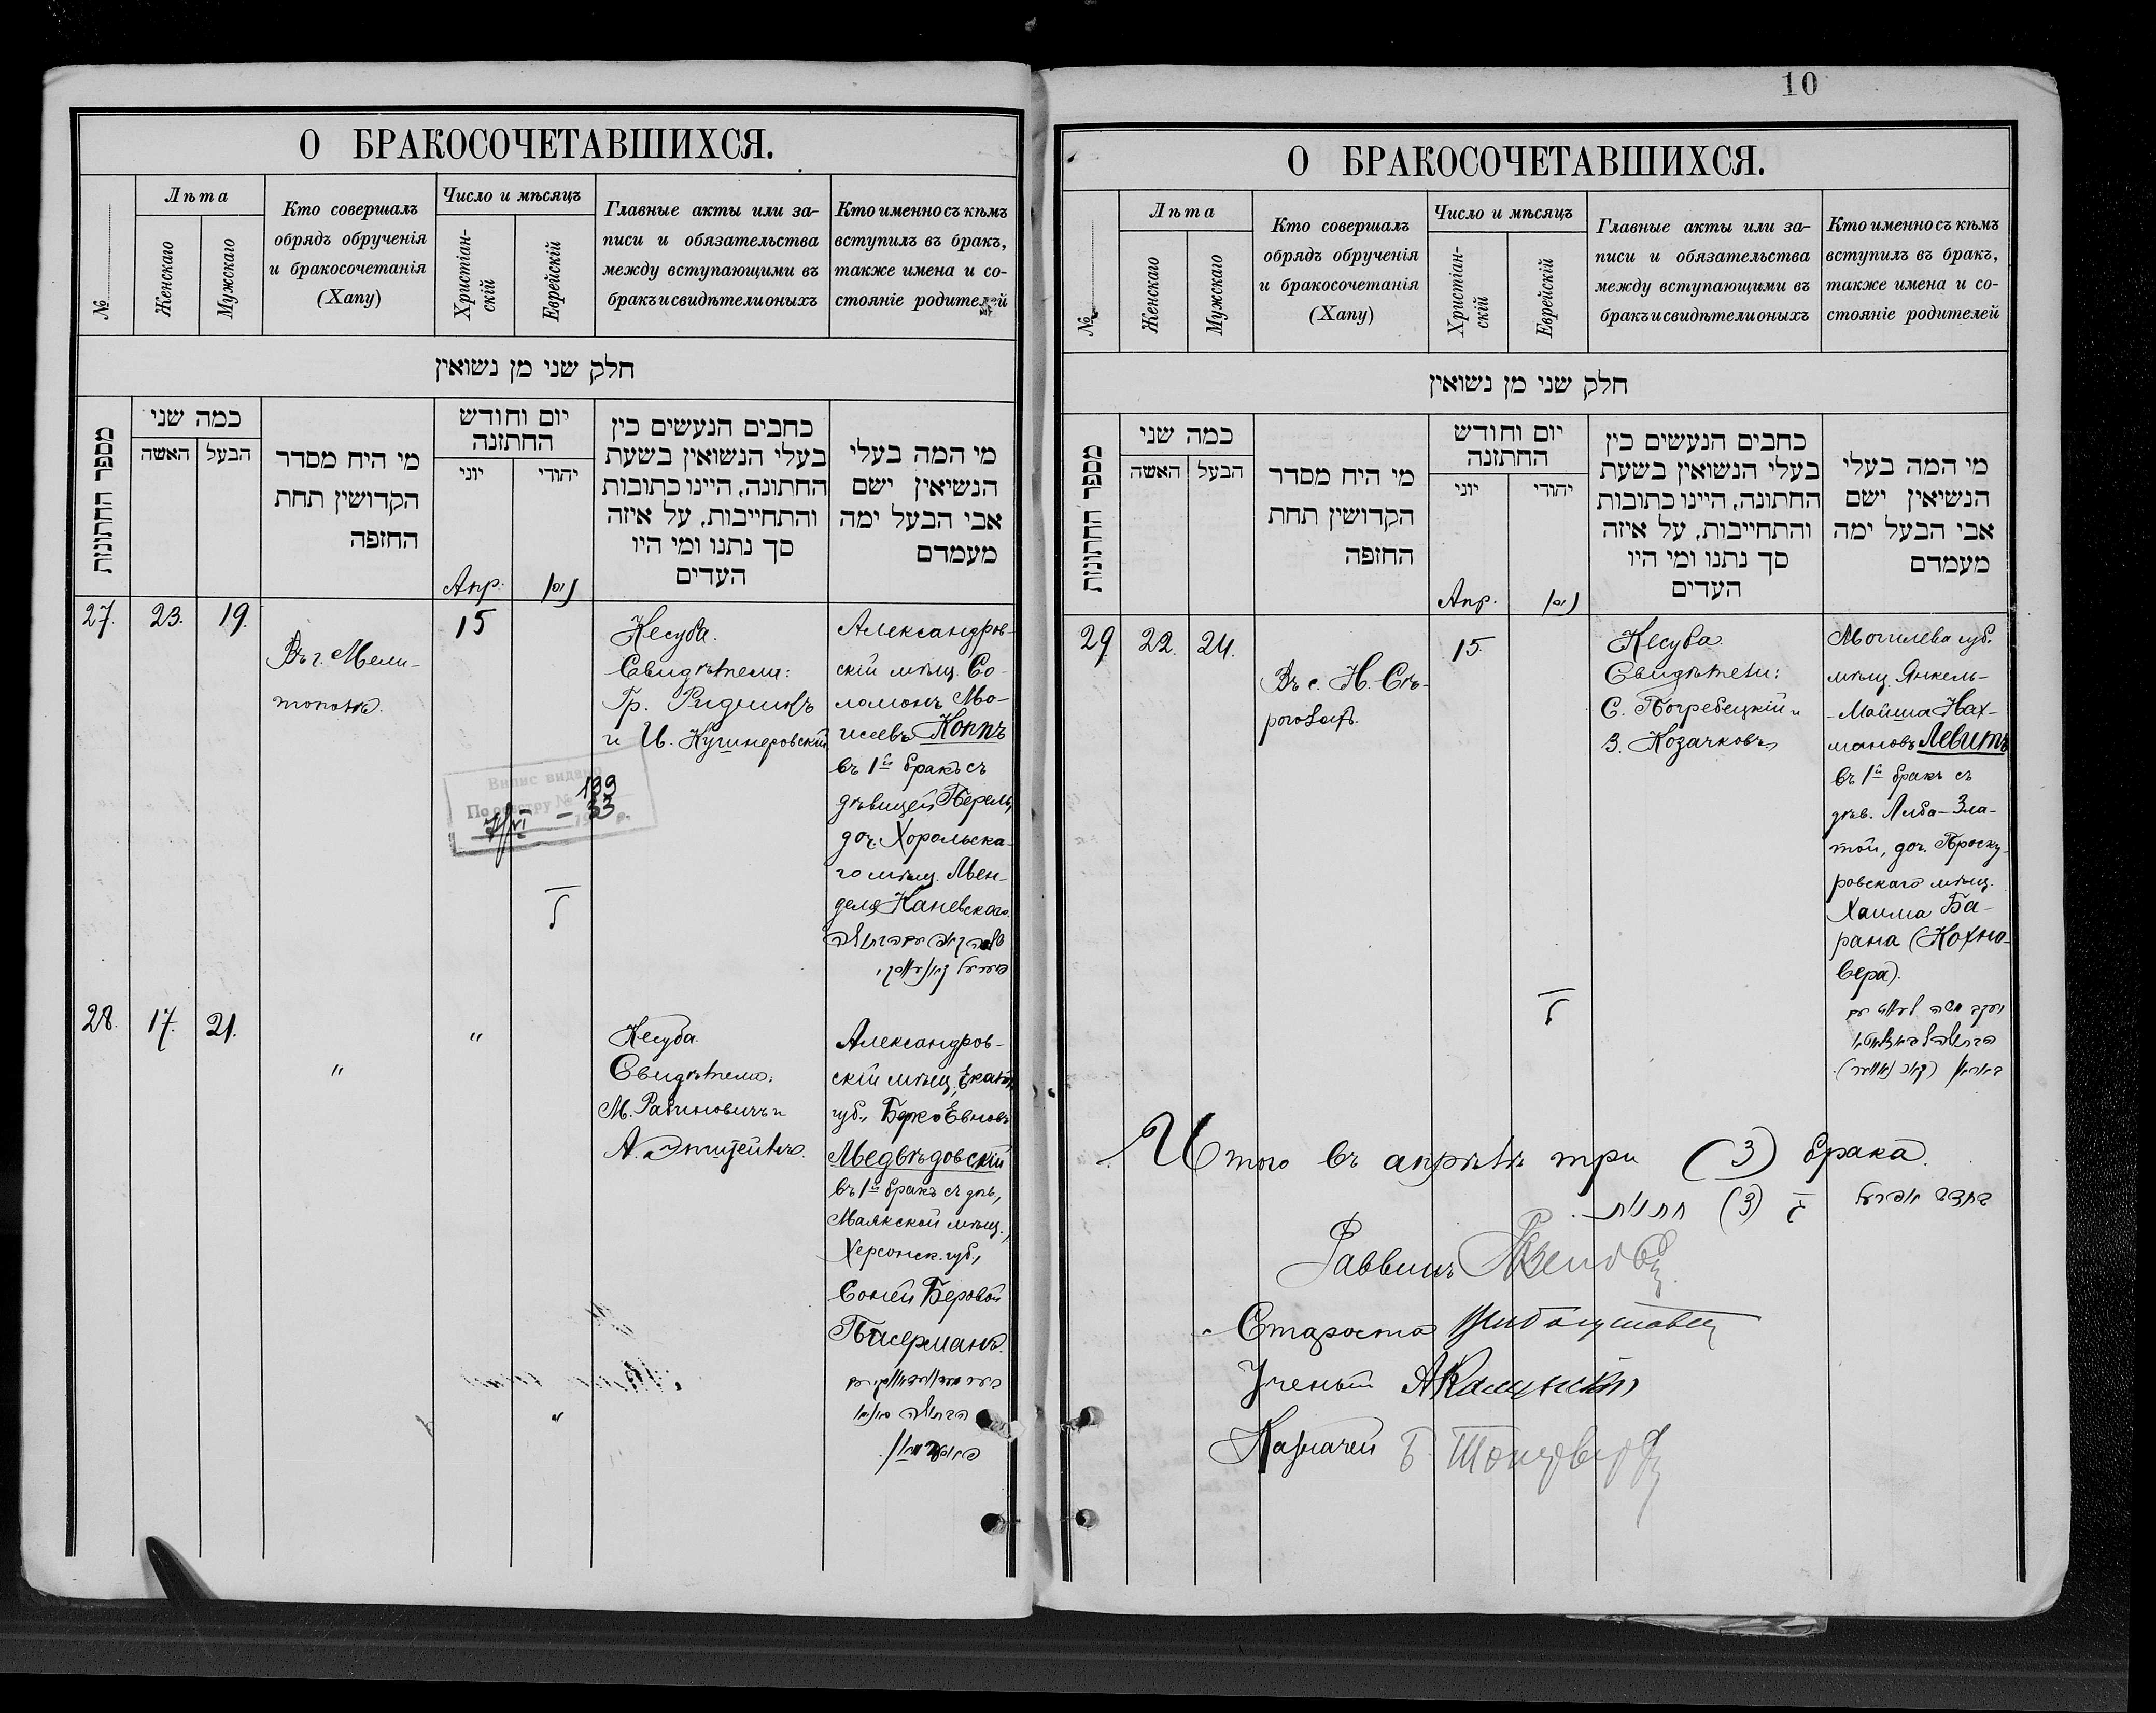 О БРАКОСОЧЕТАВШИХСЯ.
№
Лѣта
Женскаго
Мужскаго
Кто совершалъ
обрядъ обрученія
и бракосочетанія
(Хапу)
Число и мѣсяцъ
Христіан-
скій
Еврейскій
Главные акты или за-
писи и обязательства
между вступающими въ
бракъ и свидѣтели оныхъ
Кто именно съ кѣмъ
вступилъ въ бракъ,
также имена и со-
стояніе родителей
חלק שני מן נשואין
מספר החתונות
כמה שני
האשה
הבעל
מי היח מסדר
הקדושין תחת
החזפה
יום וחודש
החתזנה
יוני
יהודי
Апр.
ניסן
כחבים הנעשים כין
בעלי הנשואין בשעת
החתונה, היינו כתובות
והתחייבות, על איזה
סך נתנו ומי היו
העדים
מי המה בעלי
הנשיאין ישם
אבי הבעל ימה
מעמדם
27.
23.
19.
Въ г. Мели-
тополѣ.
15
Кесуба.
Свидѣтели:
Гр. Ридникъ
и И. Кушнеровскій
Александров-
скій мѣщ. Со-
ломонъ Мо-
исеевъ Коппъ
въ 1й бракъ съ
дѣвицей Перель,
доч. Хорольска-
го мѣщ. Мен-
деля Каневскаго.
Випис видано
По реєстру № 139
7/VI - 33 р.
28.
17.
21.
"
"
Кесуба.
Свидѣтели:
М. Рабиновичъ и
А. Эпштейнъ.
Александров-
скій мѣщ. Екат.
губ., Берко Евновъ
Медвѣдовскій
въ 1й бракъ съ дѣв,
Маякской мѣщ.,
Херсонск. губ.,
Соней Беровой
Писерманъ.
"
10
О БРАКОСОЧЕТАВШИХСЯ.
№
Лѣта
Женскаго
Мужскаго
Кто совершалъ
обрядъ обрученія
и бракосочетанія
(Хапу)
Число и мѣсяцъ
Христіан-
скій
Еврейскій
Главные акты или за-
писи и обязательства
между вступающими въ
бракъ и свидѣтели оныхъ
Кто именно съ кѣмъ
вступилъ въ бракъ,
также имена и со-
стояніе родителей
חלק שני מן נשואין
מספר החתונות
כמה שני
האשה
הבעל
מי היח מסדר
הקדושין תחת
החזפה
יום וחודש
החתזנה
יוני
יהודי
Апр.
ניסן
כחבים הנעשים כין
בעלי הנשואין בשעת
החתונה, היינו כתובות
והתחייבות, על איזה
סך נתנו ומי היו
העדים
מי המה בעלי
הנשיאין ישם
אבי הבעל ימה
מעמדם
29.
22.
24.
Въ с. Н. Сѣ-
рогозахъ.
15.
Кесуба
Свидѣтели:
С. Погребецкій и
З. Козачковъ
Могилева губ.
мѣщ. Янкель-
-Мойша Нах-
мановъ Левитъ
въ 1й бракъ съ
дѣв. Либа-Зла-
той, доч. Проску-
ровскаго мѣщ.
Хаима Ба-
рана (Кохно-
вера).
Итого въ апрѣлѣ три (3) брака.
Раввинъ
Староста
Ученый А Каменскій
Казначей